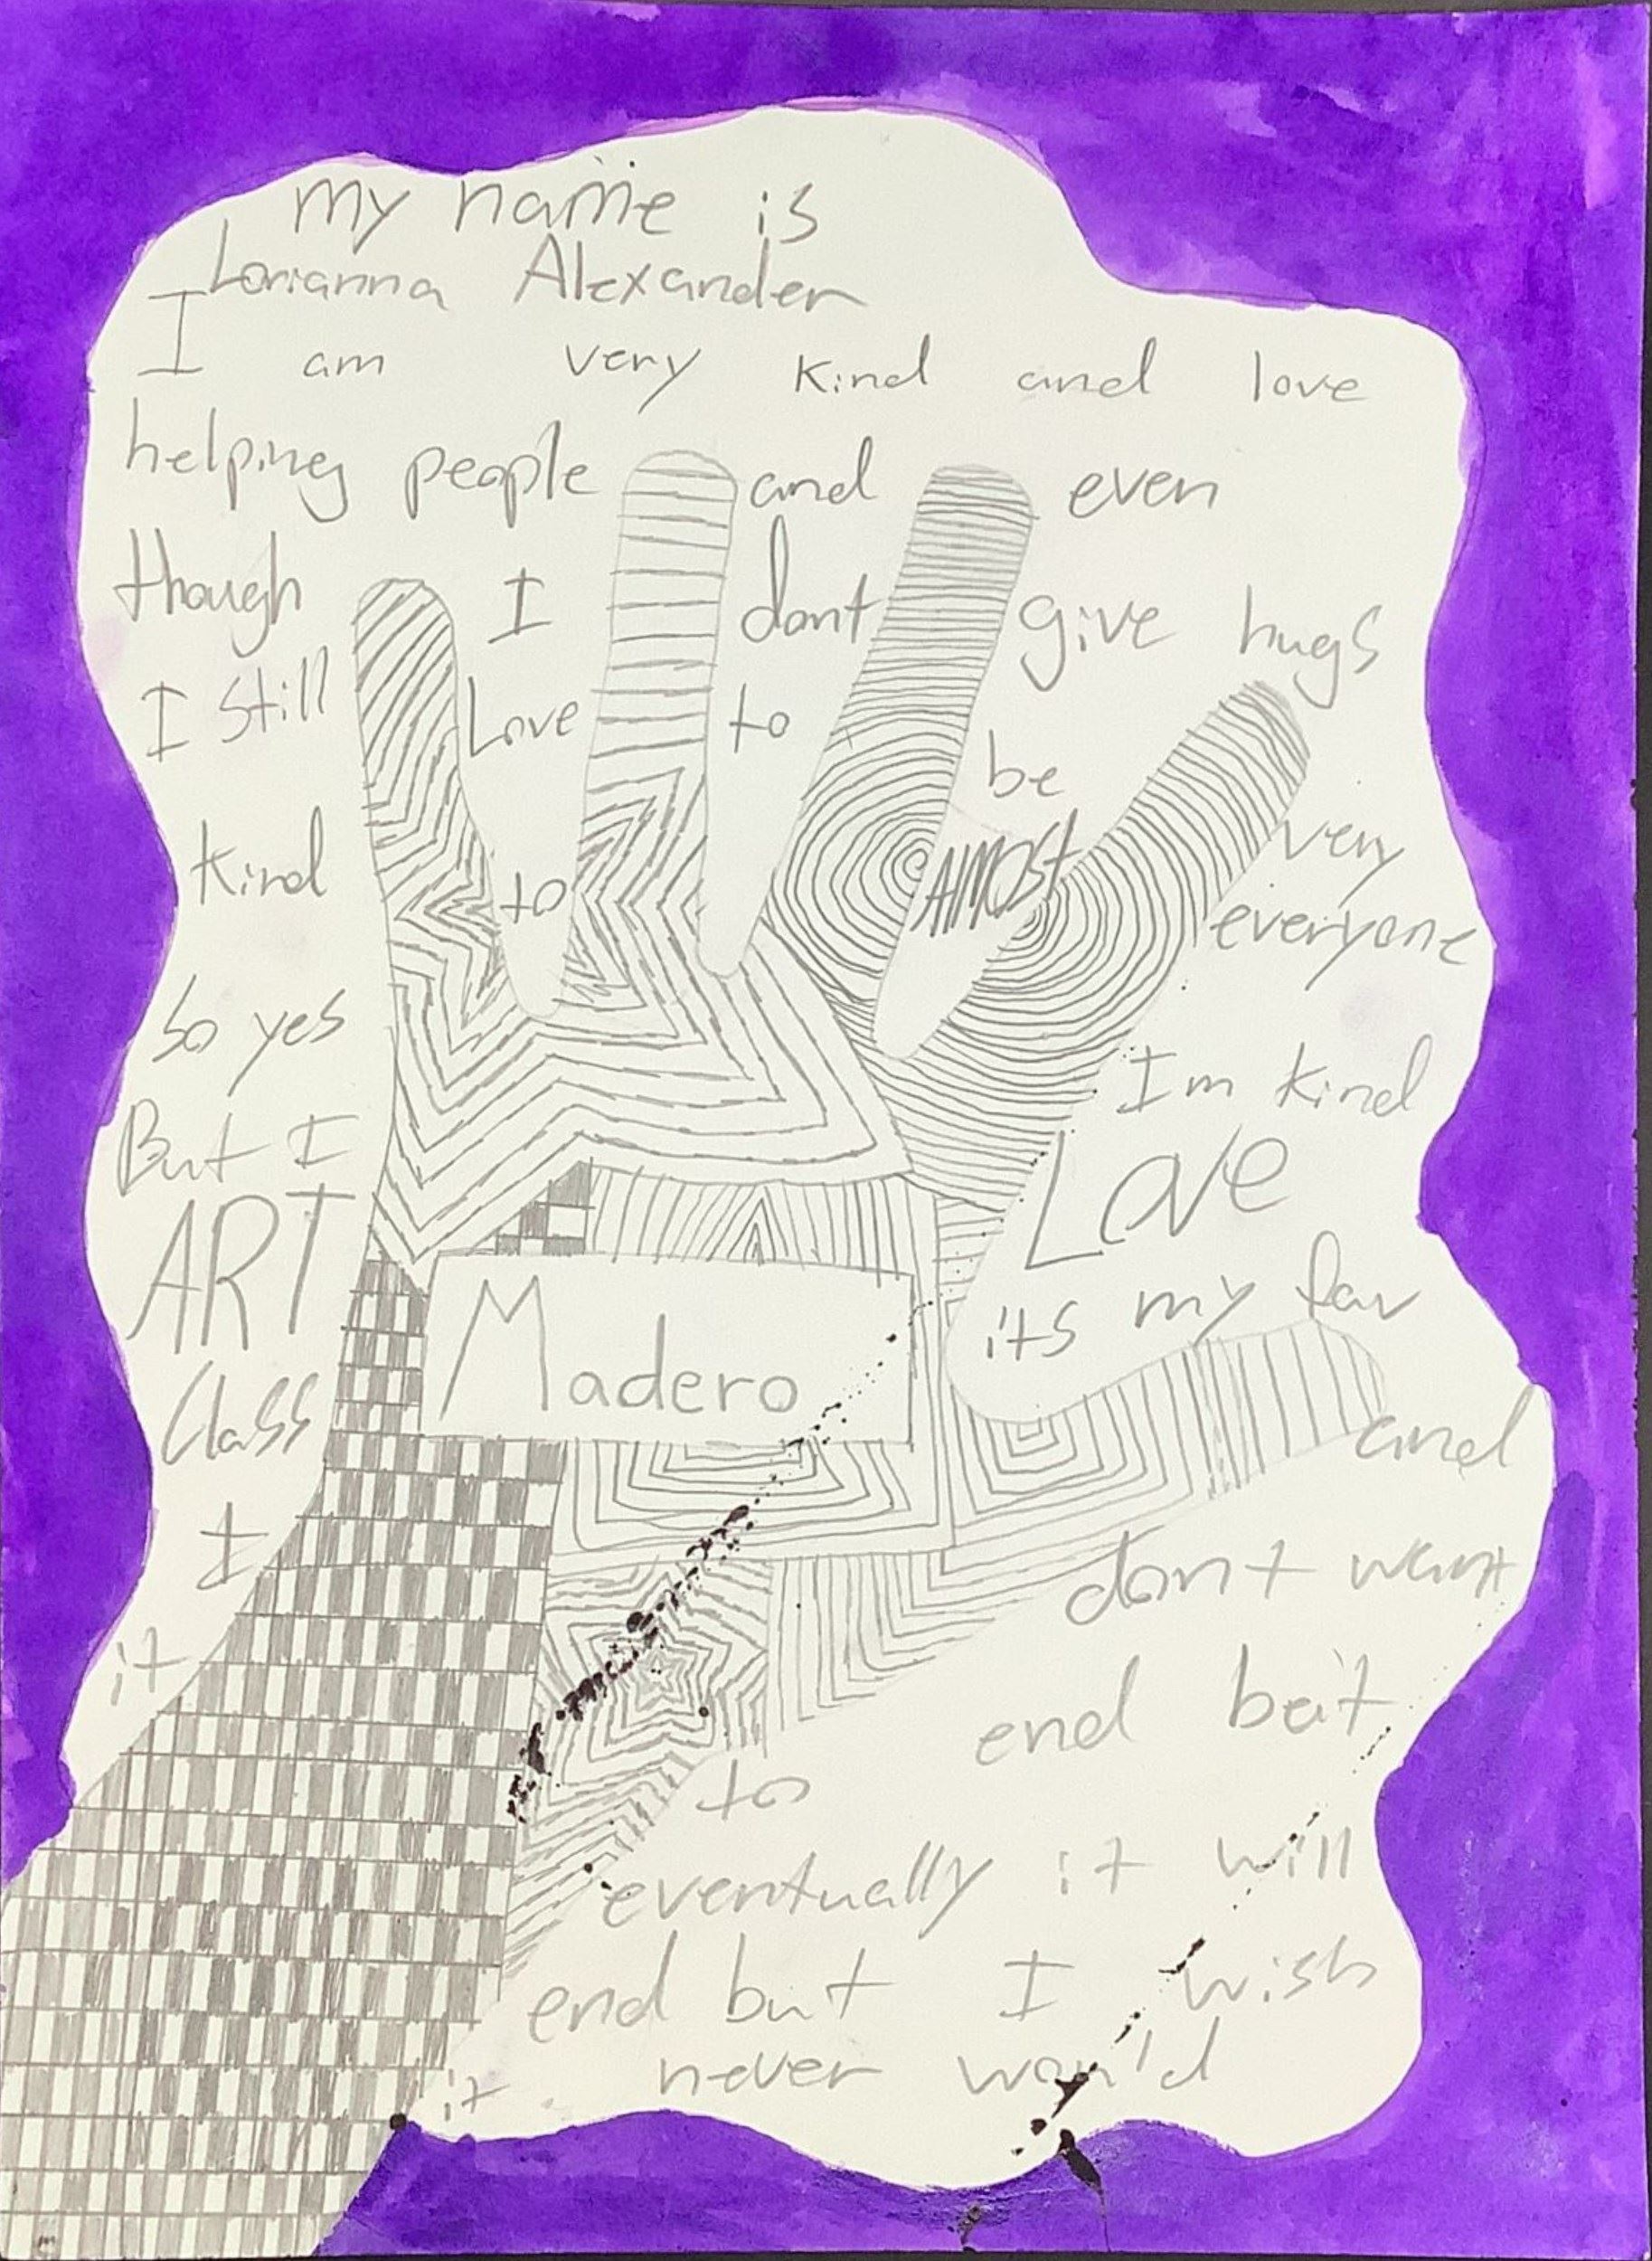 my name is
Lorianna Alexander
I am very kind and love
helping people and even
though I dont give hugs
I still Love to be very
kind to Almost everyone
so yes Im kind
But I Love
ART its my fav
Class and
I dont want
it to end but
eventually it will
end but I wish
it never wou'd
Madero